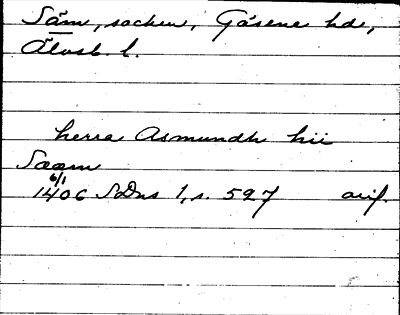 Säm, socken, Gäsene hde,
Älvsb. l.
herra Asmundh hii
Sææm
6/1
1406 SDns 1, s. 527 avif.